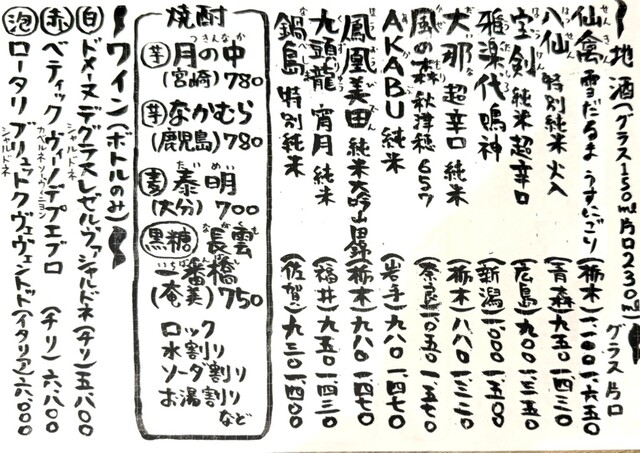 地酒(グラス150ml 片口230ml)
グラス 片口
仙禽 雪だるま うすにごり (栃木) 一、一〇〇 一、六五〇
八仙 特別純米 火入 (青森) 九五〇 一、四三〇
宝剣 純米超辛口 (広島) 九〇〇 一、三五〇
雅楽代 鳴神 (新潟) 一、〇〇〇 一、五〇〇
大那 超辛口 純米 (栃木) 八八〇 一、三二〇
風の森 秋津穂 657 (奈良) 一、〇五〇 一、五七〇
AKABU 純米 (岩手) 九八〇 一、四七〇
鳳凰美田 純米大吟山田錦 (栃木) 九八〇 一、四七〇
九頭龍 宵月 純米 (福井) 九五〇 一、四三〇
鍋島 特別純米 (佐賀) 九三〇 一、四〇〇
焼酎
芋 月の中
(宮崎) 780
芋 なかむら
(鹿児島) 780
麦 泰明
(大分) 700
黒糖 長雲
一番橋
(奄美) 750
ロック
水割り
ソーダ割り
お湯割り
など
ワイン(ボトルのみ)
白 ドメーヌ デグラス レゼルヴァ シャルドネ (チリ) 五、八〇〇
シャルドネ
赤 ベティック ヴィーノ デ プエブロ (チリ) 六、八〇〇
カベルネ・ソーヴィニヨン
泡 ロータリ ブリュット クヴェ ヴェントット (イタリア) 六、〇〇〇
シャルドネ